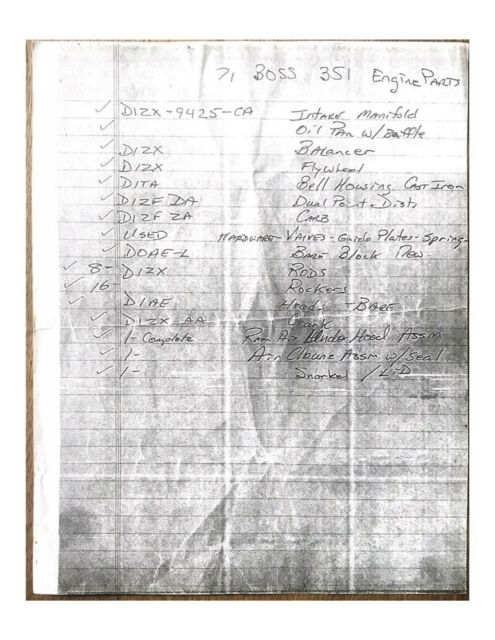 71 BOSS 351 Engine Parts
✓ D1ZX-9425-CA Intake Manifold
✓ Oil Pan w/ Baffle
✓ D1ZX Balancer
✓ D1ZX Flywheel
✓ D1TA Bell Housing Cast Iron
✓ D1ZF DA Dual Point Dist.
✓ D1ZF ZA Carb
✓ Used Hardware-Valves-Guide Plates-Spring-
✓ DOAE-L Bare Block New
✓ 8- D1ZX Rods
✓ 16- Rockers
✓ D1AE Heads - Bare
✓ D1ZX-AA Crank
✓ 1- Complete Ram Air Under Hood Assm
✓ 1- Air Cleaner Assm w/ Seal
✓ 1- Snorkel / L-D